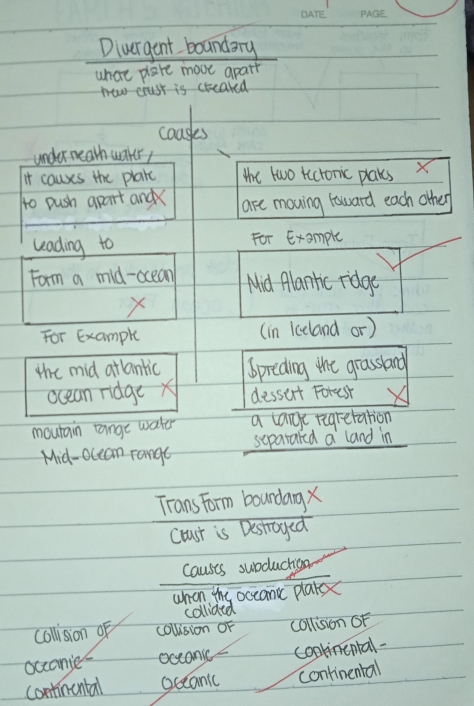 DATE PAGE
Divergent boundary
where plate move apart
new crust is created
Causes
underneath water,
it causes the plate
to push apart and
the two tectonic plates
are moving toward each other
Leading to
For Example
Form a mid-ocean
Mid Alantic ridge
For Example
(in Iceland or)
the mid atlantic
ocean ridge
Spreding the grassland
dessert Forest
moutain range water
Mid-Ocean range
a large
separated a land in
Transform boundary
Crust is Destroyed
Causes subduction
when the oceanic plate
collided
Collision OF
Oceanic-
Continental
collision OF
oceanic-
Oceanic
collision OF
continental-
continental